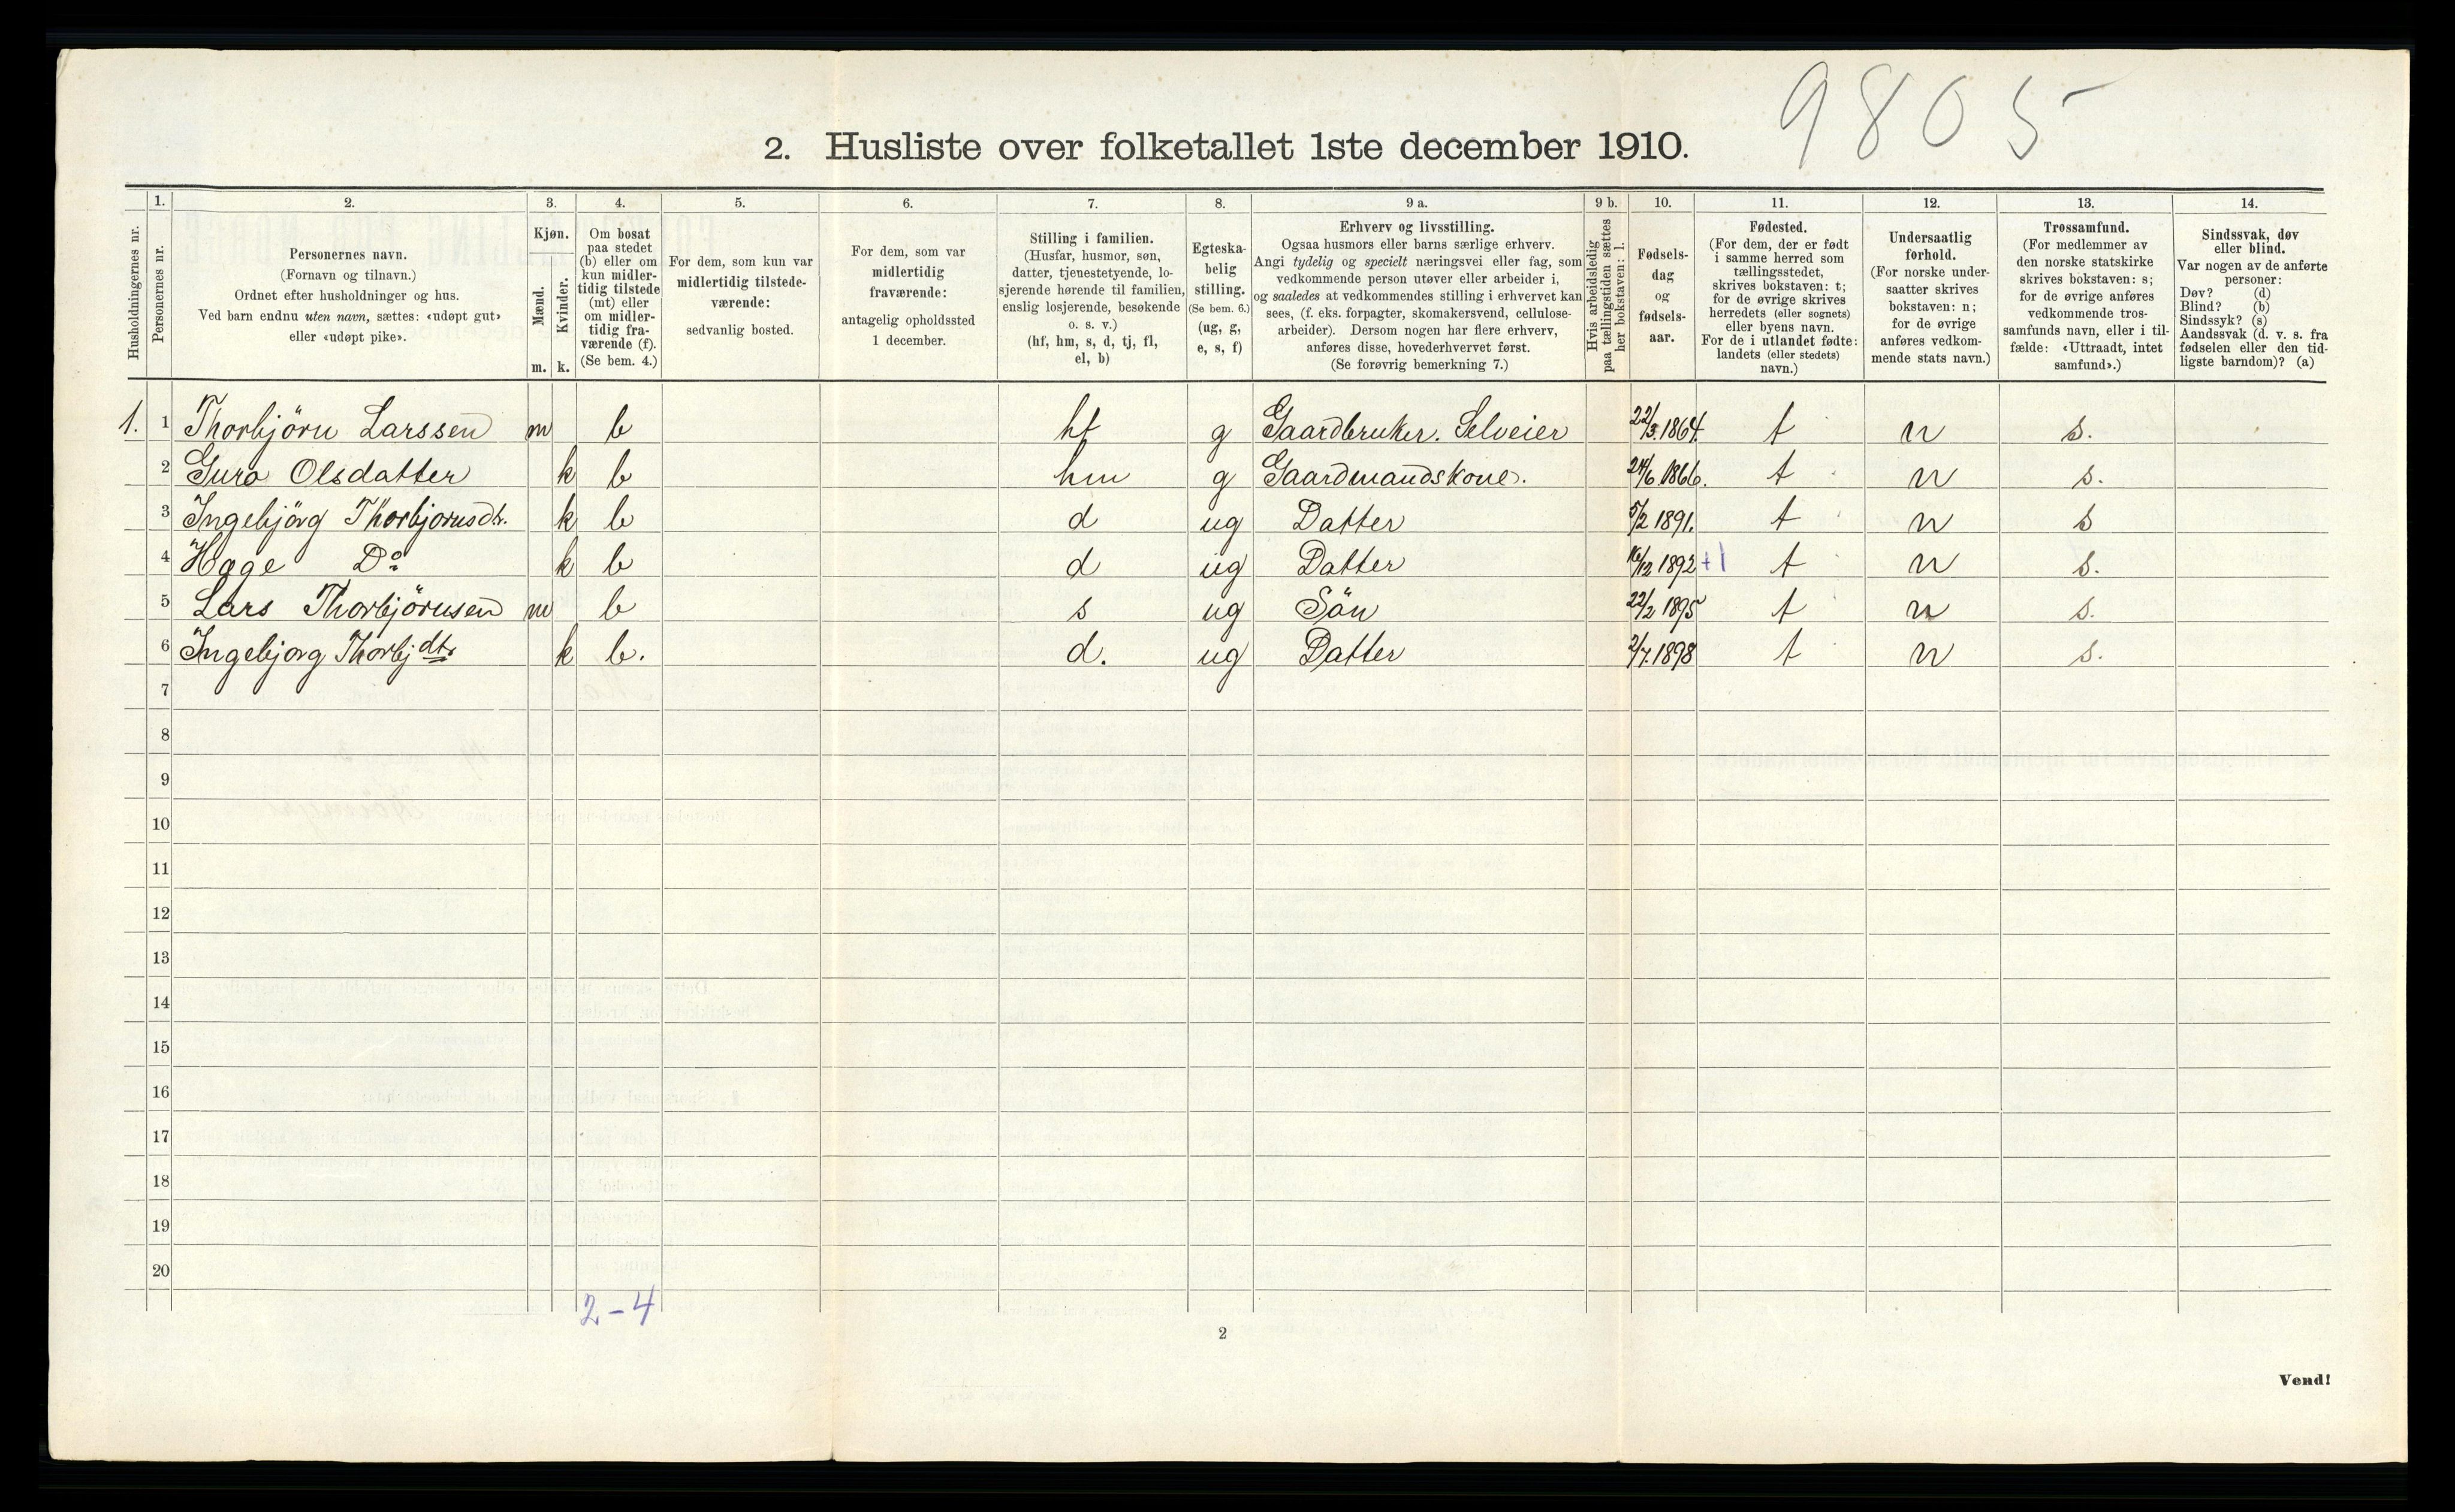 9805
2. Husliste over folketallet 1ste december 1910.
Husholdningernes nr.
1.
Personernes nr.
2.
Personernes navn.
(Fornavn og tilnavn.)
Ordnet efter husholdninger og hus.
Ved barn endnu uten navn, sættes: «udøpt gut»
eller «udøpt pike».
3.
Kjøn.
Mænd.
Kvinder.
m. k.
4.
Om bosat
paa stedet
(b) eller om
kun midler-
tidig tilstede
(mt) eller
om midler-
tidig fra-
værende (f).
(Se bem. 4.)
5.
For dem, som kun var
midlertidig tilstede-
værende:
sedvanlig bosted.
6.
For dem, som var
midlertidig
fraværende:
antagelig opholdssted
1 december.
7.
Stilling i familien.
(Husfar, husmor, søn,
datter, tjenestetyende, lo-
sjerende hørende til familien,
enslig losjerende, besøkende
o. s. v.)
(hf, hm, s, d, tj, fl,
el, b)
8.
Egteska-
belig
stilling.
(Se bem. 6.)
(ug, g,
e, s, f)
9 a.
Erhverv og livsstilling.
Ogsaa husmors eller barns særlige erhverv.
Angi tydelig og specielt næringsvei eller fag, som
vedkommende person utøver eller arbeider i,
og saaledes at vedkommendes stilling i erhvervet kan
sees, (f. eks. forpagter, skomakersvend, cellulose-
arbeider). Dersom nogen har flere erhverv,
anføres disse, hovederhvervet først.
(Se forøvrig bemerkning 7.)
9 b.
Hvis arbeidsledig
paa tællingstiden sættes
her bokstaven: l.
10.
Fødsels-
dag
og
fødsels-
aar.
11.
Fødested.
(For dem, der er født
i samme herred som
tællingsstedet,
skrives bokstaven: t;
for de øvrige skrives
herredets (eller sognets)
eller byens navn.
For de i utlandet fødte:
landets (eller stedets)
navn.)
12.
Undersaatlig
forhold.
(For norske under-
saatter skrives
bokstaven: n;
for de øvrige
anføres vedkom-
mende stats navn.)
13.
Trossamfund.
(For medlemmer av
den norske statskirke
skrives bokstaven: s;
for de øvrige anføres
vedkommende tros-
samfunds navn, eller i til-
fælde: «Uttraadt, intet
samfund».)
14.
Sindssvak, døv
eller blind.
Var nogen av de anførte
personer:
Døv? (d)
Blind? (b)
Sindssyk? (s)
Aandssvak (d. v. s. fra
fødselen eller den tid-
ligste barndom)? (a)
1. 1 Thorbjörn Larssen m b hf g Gaardbruker. Selveier 22/3 1864. t n s.
2 Guro Olsdatter k b hm g Gaardmandskone. 24/6 1866. t n s.
3 Ingebjörg Thorbjornsdtr. k b d ug Datter 5/2 1891. t n s
4 Hæge Do k b d ug Datter 16/12 1892 +1 t n s.
5 Lars Thorbjörnsen m b s ug Sön 22/2 1895 t n s.
6 Ingebjorg Thorbj.dtr k b. d. ug Datter 2/7. 1898 t n s.
7
8
9
10
11
12
13
14
15
16
17
18
19
20
2-4
2
Vend!